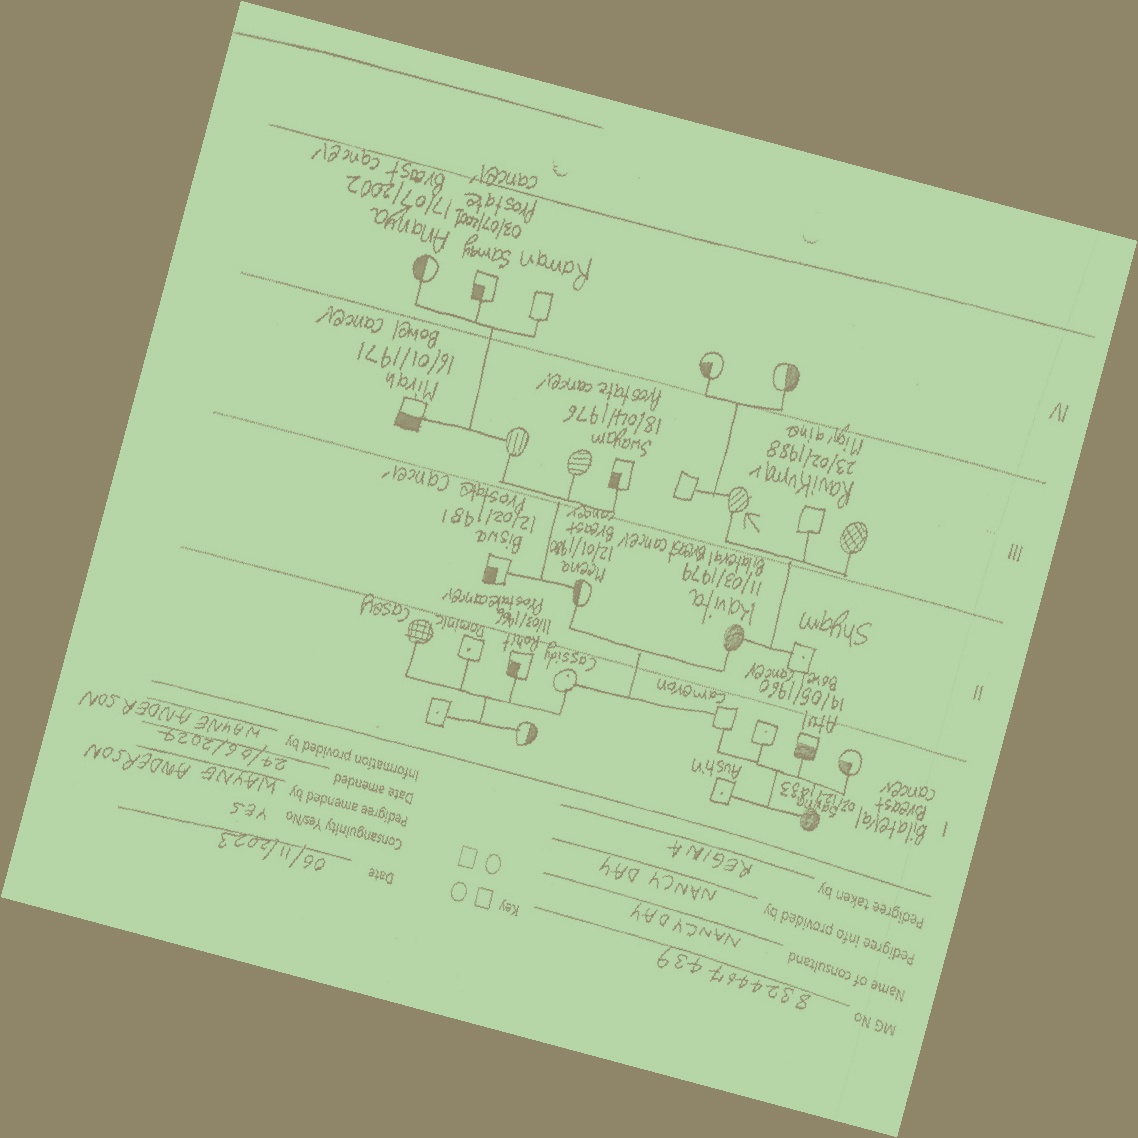 MG No 8324467439
Name of consultand NANCY DAY
Pedigree info provided by NANCY DAY
Pedigree taken by REGINA
Key
Date 06/11/2023
Consanguinity Yes/No YES
Pedigree amended by WAYNE ANDERSON
Date amended 27/06/2027
Information provided by WAYNE ANDERSON
I
Bilateral
Breast
cancer
02/12/1833
Austin
Atul
19/05/1960
Bone cancer
Cameron
Cassidy
Rohit
11/03/1966
Prostate cancer
Dominic
Casey
II
Shyam
Kavita
11/03/1979
Bilateral Breast cancer
Meena
12/01/1980
Breast
cancer
Biswa
12/02/1981
Prostate Cancer
III
Ravikumar
23/02/1988
Migraine
Swayam
18/04/1976
Prostate cancer
Mirah
16/01/1971
Bowel cancer
IV
Raman
Samy
03/07/2001
Prostate
cancer
Ananya
17/07/2002
Breast cancer